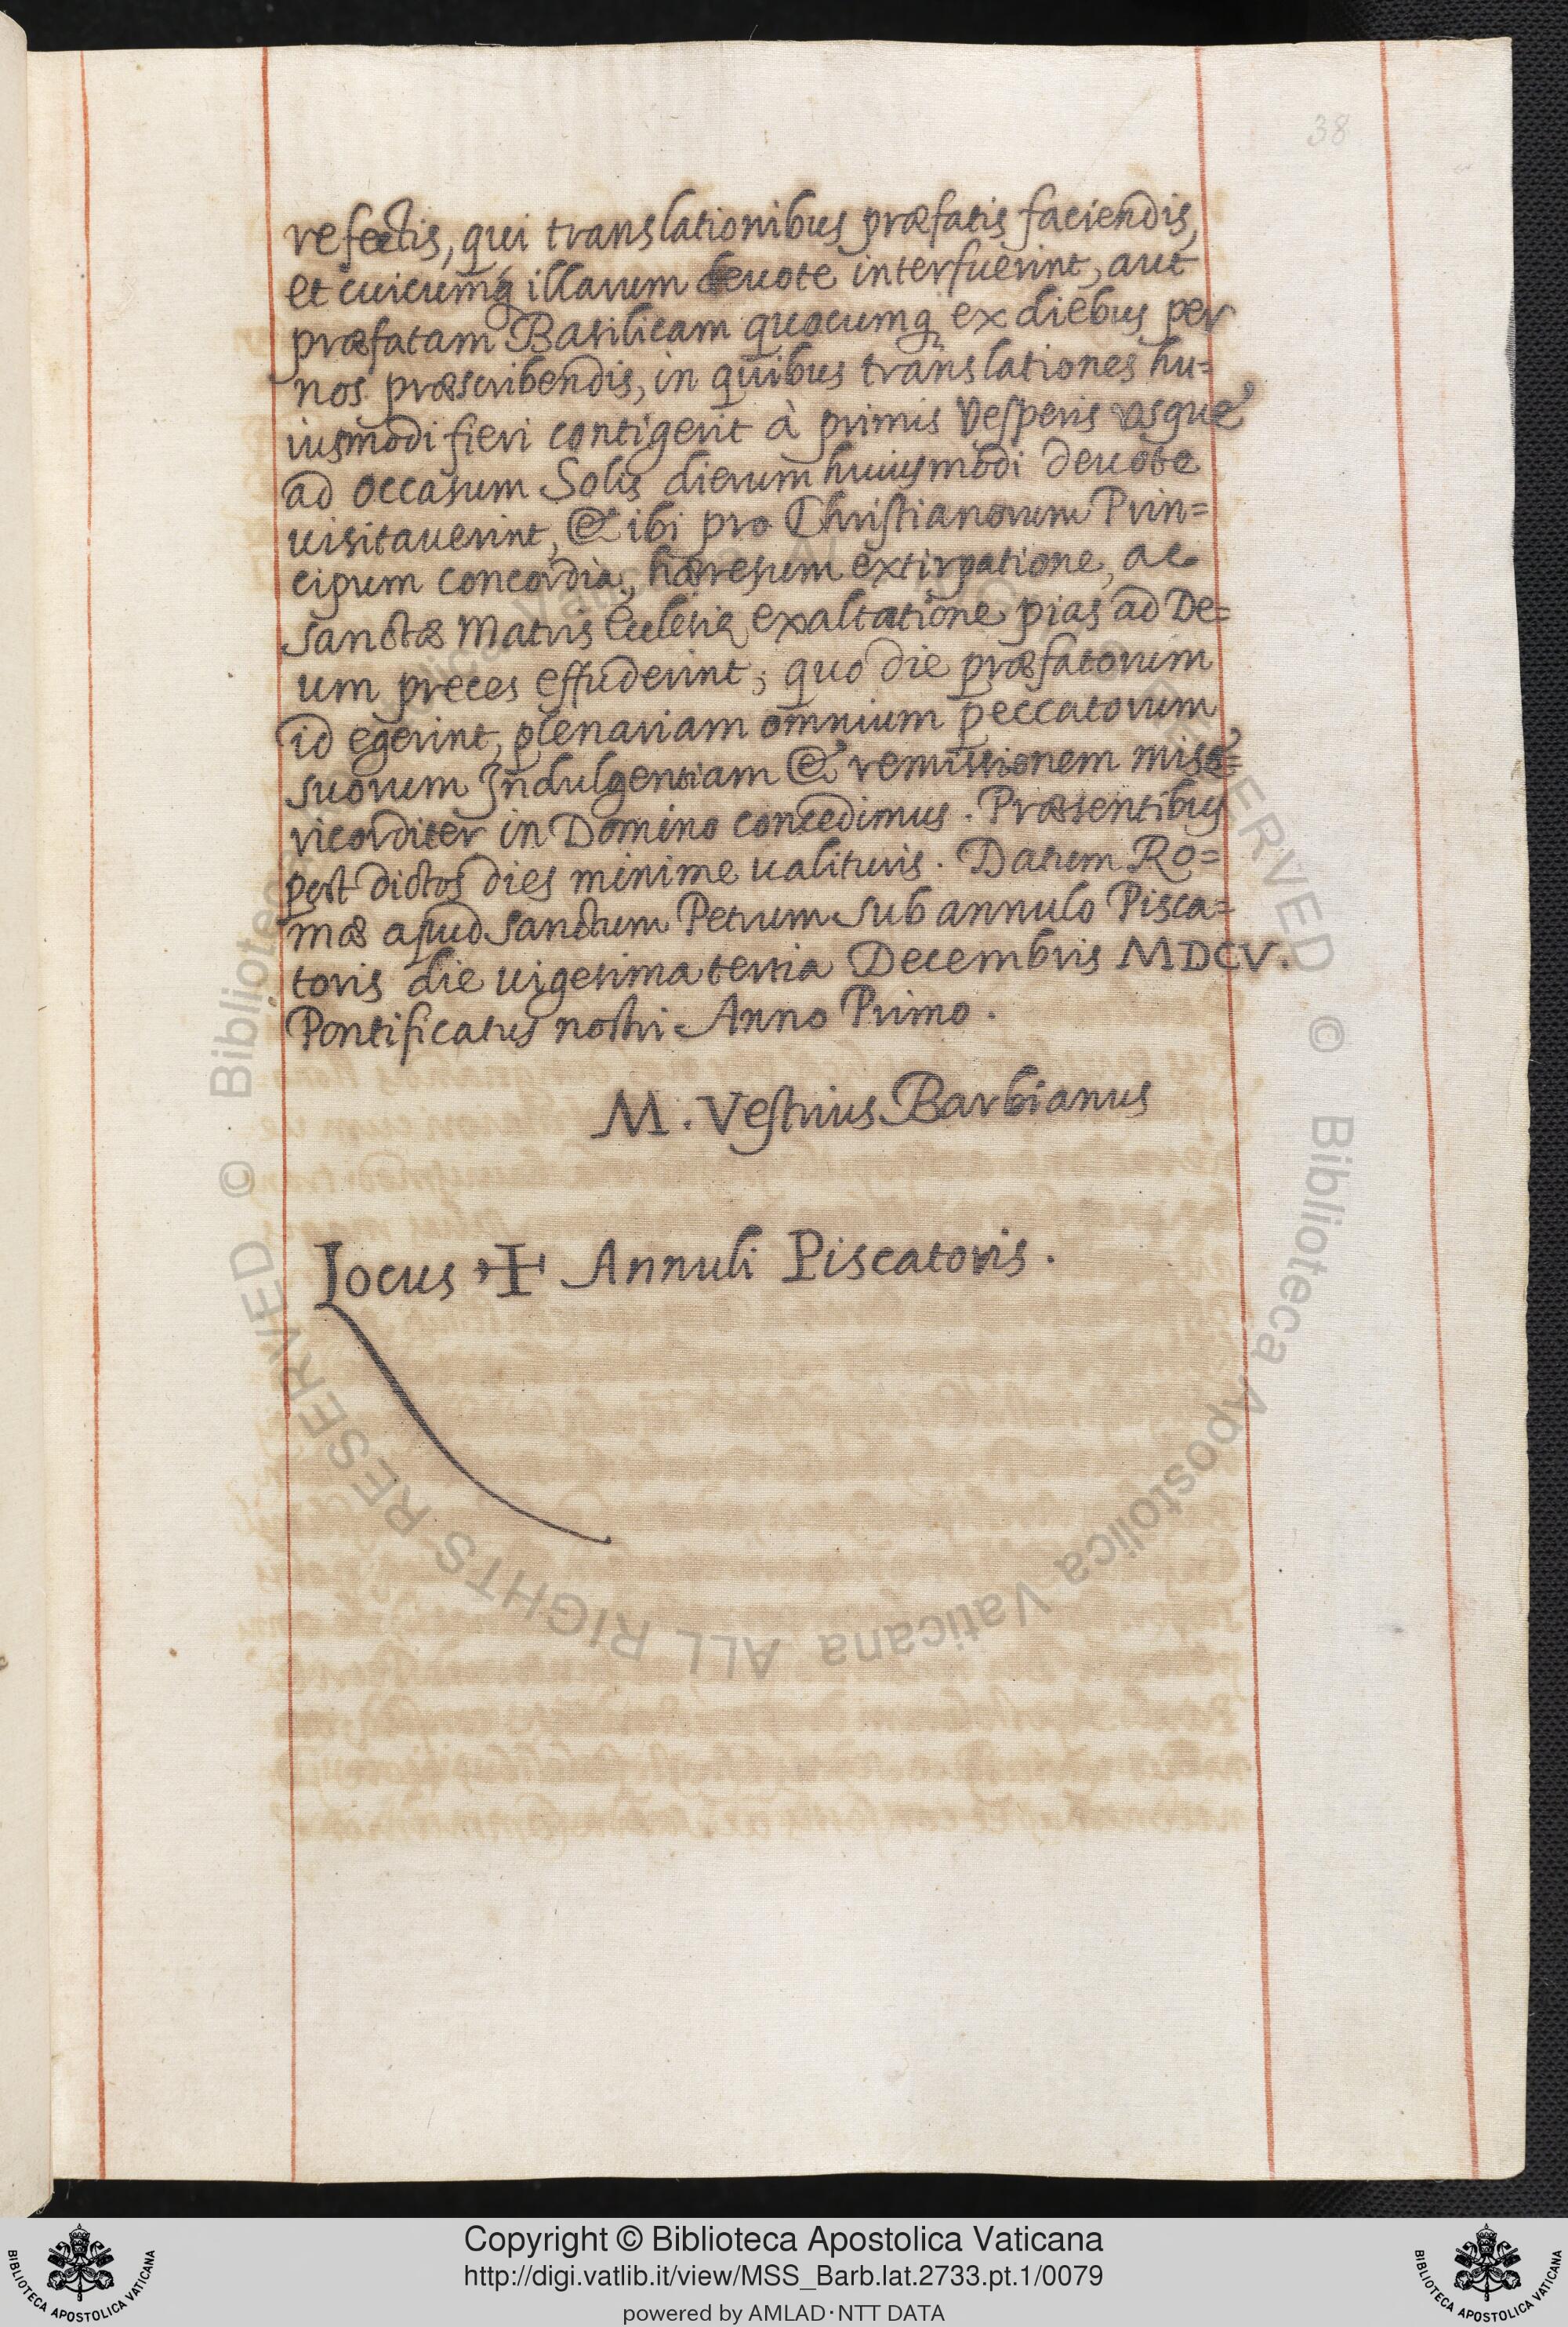 38
refectis, qui translationibus præfatis faciendis,
et cuicumq illarum deuote interfuerint, aut
præfatam Basilicam quocumq ex diebus per
nos præscribendis, in quibus translationes hu=
iusmodi fieri contigerit à primis Vesperis vsque
ad occasum Solis dierum huiusmodi deuote
uisitauerint, & ibi pro Christianorum Prin=
cipum concordia, hæresum extirpatione, ac
sanctæ Matris Ecclesię exaltatione pias ad De=
um preces effuderint; quo die præfatorum
id egerint, plenariam omnium peccatorum
suorum Indulgentiam & remissionem mise=
ricorditer in Domino concedimus. Præsentibus
post dictos dies minime ualituris. Datum Ro=
mæ apud Sanctum Petrum sub annulo Pisca=
toris die uigesima tertia Decembris MDCV.
Pontificatus nostri Anno Primo.
M. Vestrius Barbianus
Locus ✠ Annuli Piscatoris.
© Biblioteca Apostolica Vaticana ALL RIGHTS RESERVED © Biblioteca Apostolica Vaticana ALL RIGHTS RESERVED
Copyright © Biblioteca Apostolica Vaticana
http://digi.vatlib.it/view/MSS_Barb.lat.2733.pt.1/0079
powered by AMLAD·NTT DATA
BIBLIOTECA APOSTOLICA VATICANA
BIBLIOTECA APOSTOLICA VATICANA